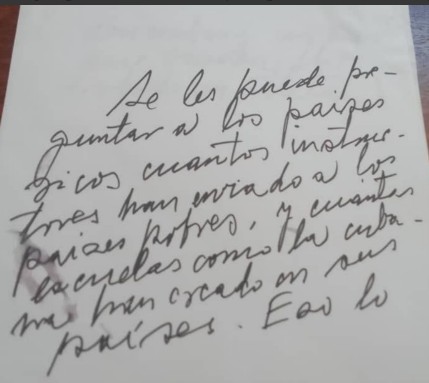 Se les puede pre-
guntar a los países
ricos cuantos instruc-
tores han enviado a los
países pobres, y cuantas
escuelas como la cuba-
na han creado en sus
países. Eso lo